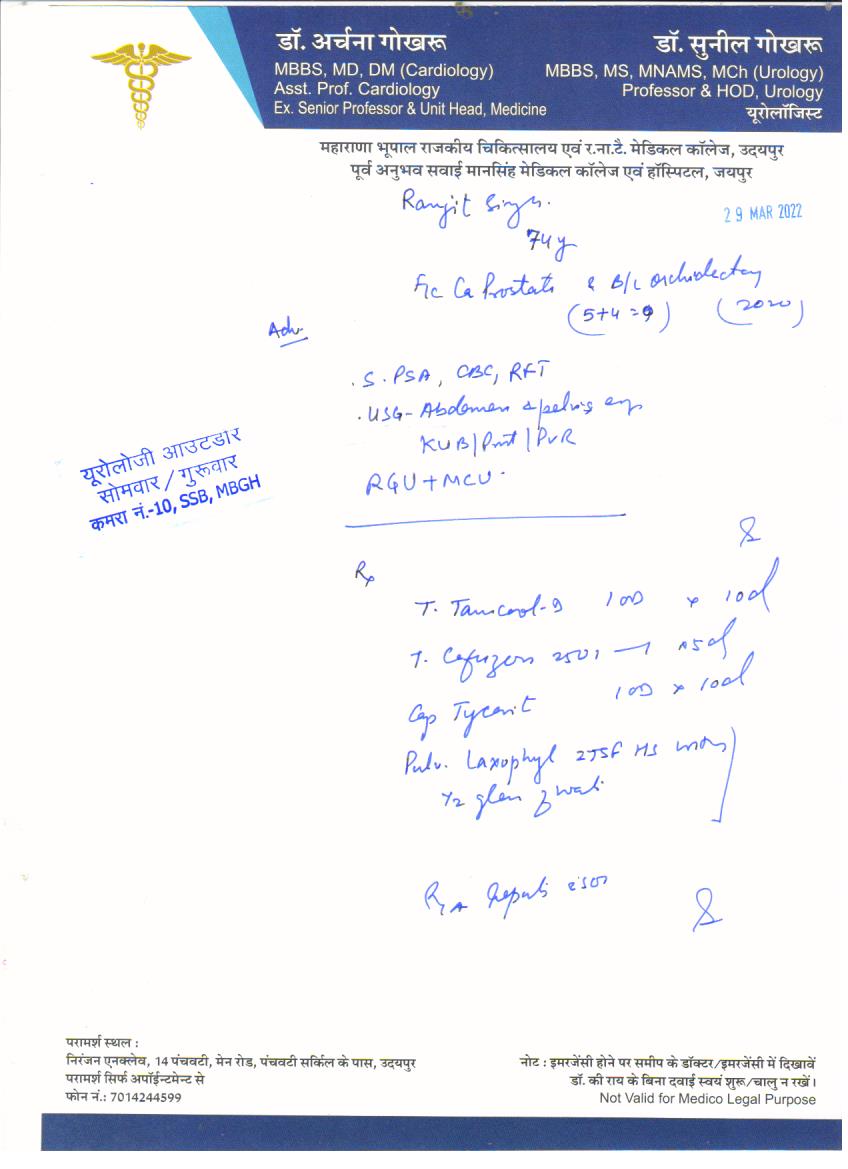 डॉ. अर्चना गोखरू
MBBS, MD, DM (Cardiology)
Asst. Prof. Cardiology
Ex. Senior Professor & Unit Head, Medicine
डॉ. सुनील गोखरू
MBBS, MS, MNAMS, MCh (Urology)
Professor & HOD, Urology
यूरोलॉजिस्ट
महाराणा भूपाल राजकीय चिकित्सालय एवं र.ना.टै. मेडिकल कॉलेज, उदयपुर
पूर्व अनुभव सवाई मानसिंह मेडिकल कॉलेज एवं हॉस्पिटल, जयपुर
Ranjit Singh.
29 MAR 2022
74y
F/c Ca Prostate & B/L orchidectomy
(5+4=9) (2020)
Adv.
. S. PSA, CBC, RFT
. USG - Abdomen & pelvis
KUB / / PVR
RGU + MCU.
यूरोलोजी आउटडोर
सोमवार / गुरूवार
कमरा नं.-10, SSB, MBGH
Rx
T. 1OD x 10d
T. 250 x 5d
Cap 1OD x 10d
Pulv. Laxophyl 2TSF HS
1/2 glass of water
परामर्श स्थल :
निरंजन एनक्लेव, 14 पंचवटी, मेन रोड, पंचवटी सर्किल के पास, उदयपुर
परामर्श सिर्फ अपॉईन्टमेन्ट से
फोन नं.: 7014244599
नोट : इमरजेंसी होने पर समीप के डॉक्टर/इमरजेंसी में दिखावें
डॉ. की राय के बिना दवाई स्वयं शुरू/चालु न रखें।
Not Valid for Medico Legal Purpose